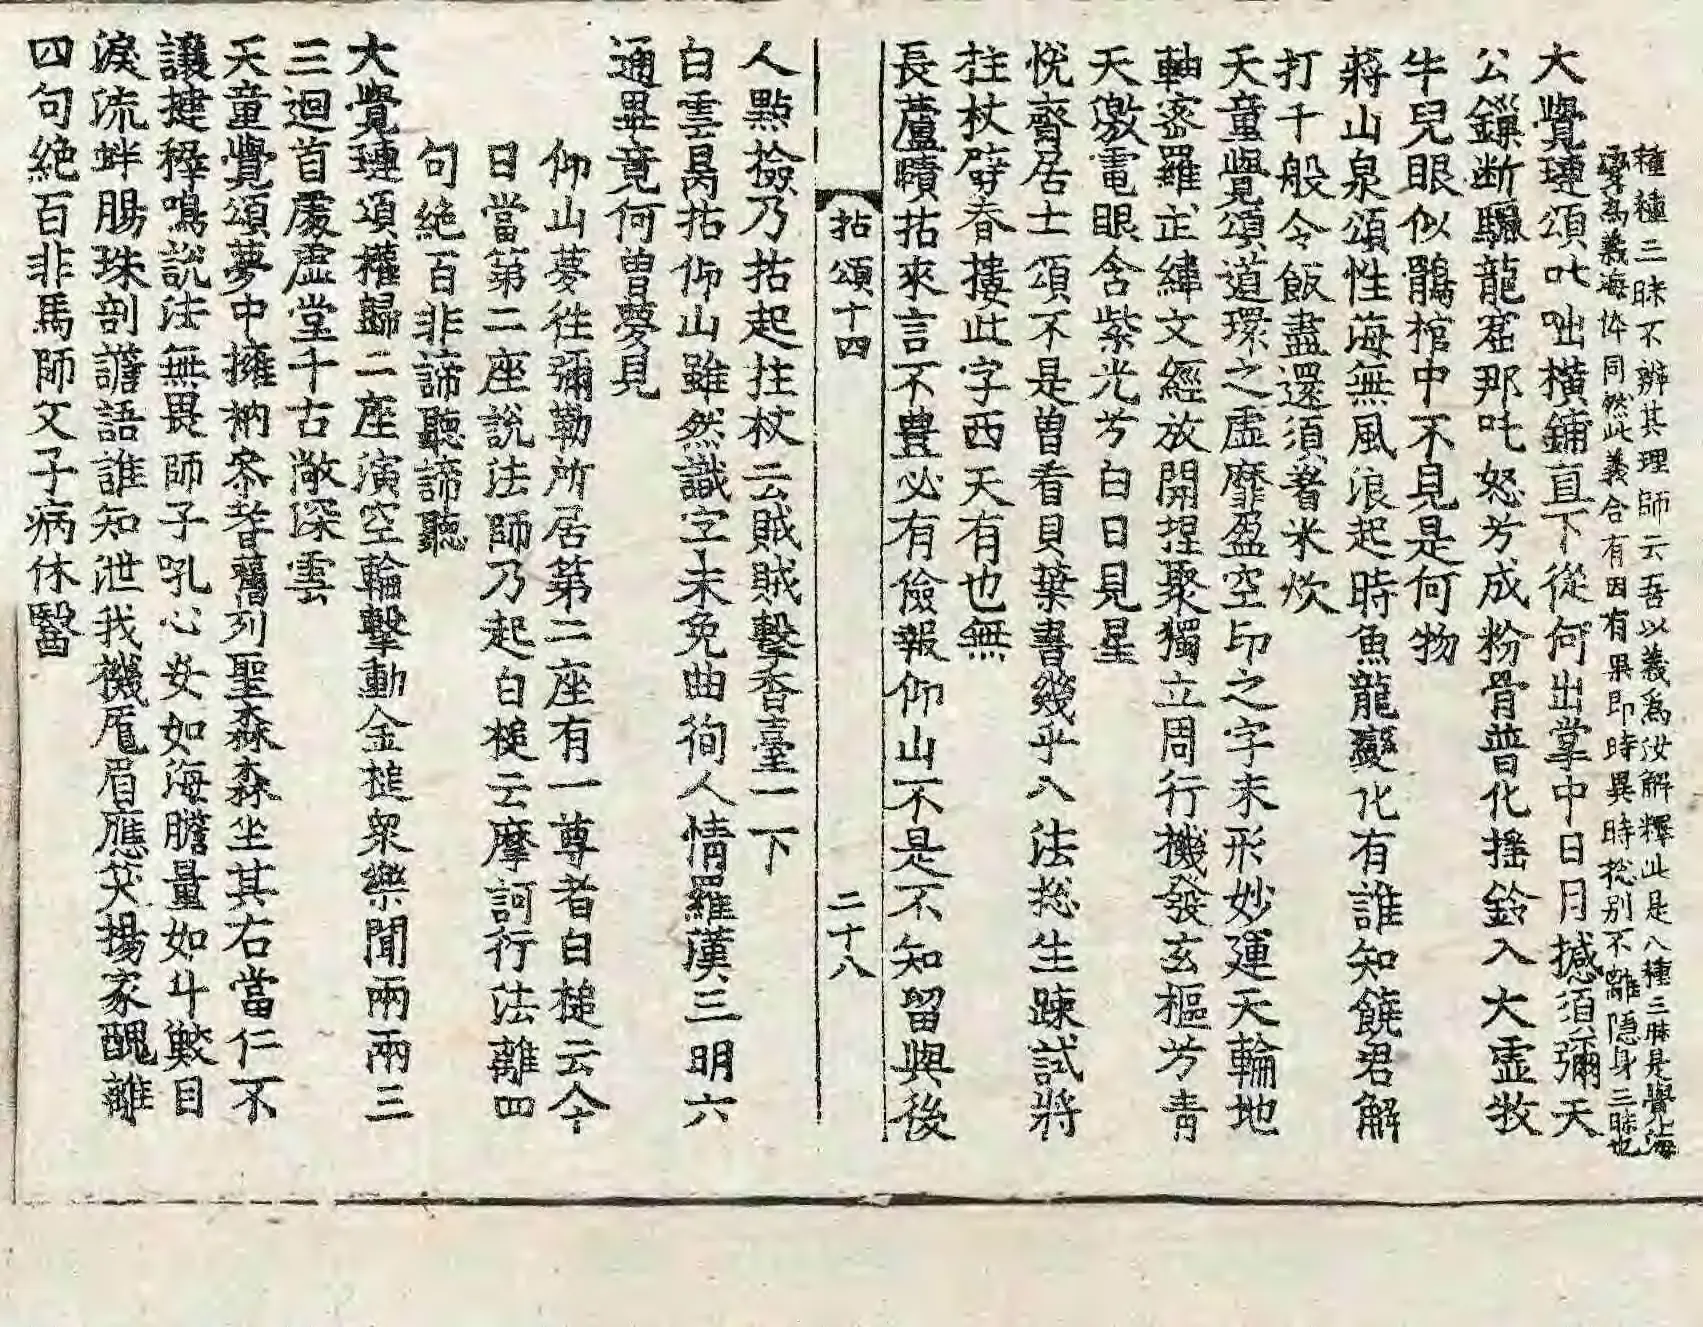 種種三昧不辨其理師云吾以義爲汝解釋此是八種三昧是覺海
變爲義海体同然此義合有因有果即時異時捴別不離隱身三昧也
大覺璉頌叱咄橫鋪直下從何出掌中日月撼須彌天
公鏁断驪龍窟那吒怒芳成粉骨普化搖鈴入大虛牧
牛兒眼似鶻棺中不見是何物
蔣山泉頌性海無風浪起時魚龍變化有誰知饒君解
打千般令飯盡還須着米炊
天童覺頌道環之虛靡盈空印之字未形妙運天輪地
軸密羅武緯文經放開捏聚獨立周行機發玄樞芳青
天激電眼含紫光芳白日見星
悅齋居士頌不是曾看貝葉書幾乎入法捴生踈試將
拄杖劈春摟此字西天有也無
長蘆賾拈來言不豊必有儉報仰山不是不知留與後
拈頌十四 二十八
人點撿乃拈起拄杖云賊賊擊香臺一下
白雲昺拈仰山雖然識字未免曲徇人情羅漢三明六
通畢竟何曾夢見
仰山夢徃彌勒所居第二座有一尊者白槌云今
日當第二座說法師乃起白槌云摩訶衍法離四
句絶百非諦聽諦聽
大覺璉頌權歸二座演空輪擊動金槌衆樂聞兩兩三
三迴首處虛堂千古敞深雲
天童覺頌夢中擁衲叅耆舊列聖森森坐其右當仁不
讓揵稚鳴說法無畏師子吼心安如海膽量如斗鮫目
淚流蚌膓珠剖譫語誰知泄我機厖眉應笑揚家醜離
四句絶百非馬師父子病休醫